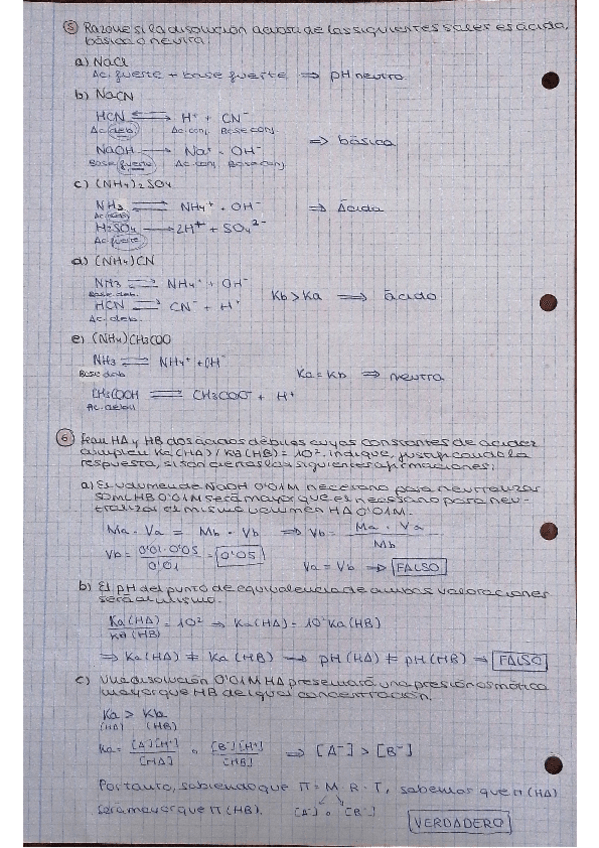 5 Razone si la disolución acuosa de las siguientes sales es ácida,
básica o neutra:
a) NaCl
Ac. fuerte + base fuerte ⇒ pH neutro
b) NaCN
HCN ⇌ H⁺ + CN⁻
Ac. deb. Ac. conj Base conj
⇒ básica
NaOH → Na⁺ + OH⁻
Base fuerte Ac. conj Base conj
c) (NH₄)₂SO₄
NH₃ ⇌ NH₄⁺ + OH⁻ ⇒ Ácida
H₂SO₄ → 2H⁺ + SO₄²⁻
Ac. fuerte
d) (NH₄)CN
NH₃ ⇌ NH₄⁺ + OH⁻
Base deb.
Kb > Ka ⇒ ácido
HCN ⇌ CN⁻ + H⁺
Ac. deb.
e) (NH₄)CH₃COO
NH₃ ⇌ NH₄⁺ + OH⁻
Base deb
Ka = Kb ⇒ neutra
CH₃COOH ⇌ CH₃COO⁻ + H⁺
Ac. debil
6 Sean HA y HB dos ácidos débiles cuyas constantes de acidez
cumplen Ka(HA) / Ka(HB) = 10². Indique, justificando la
respuesta, si son ciertas las siguientes afirmaciones:
a) El volumen de NaOH 0'01M necesario para neutralizar
50mL HB 0'01M será mayor que el necesario para neu-
tralizar el mismo volumen HA 0'01M.
Ma · Va = Mb · Vb ⇒ Vb = Ma · Va / Mb
Vb = 0'01 · 0'05 / 0'01 = 0'05 Va = Vb ⇒ FALSO
b) El pH del punto de equivalencia de ambas valoraciones
será el mismo.
Ka(HA) / Ka(HB) = 10² ⇒ Ka(HA) = 10² Ka(HB)
⇒ Ka(HA) ≠ Ka(HB) → pH(HA) ≠ pH(HB) ⇒ FALSO
c) Una disolución 0'01M HA presentará una presión osmótica
mayor que HB de igual concentración.
Ka > Kb
(HA) (HB)
Ka = [A⁻][H⁺] / [HA] = [B⁻][H⁺] / [HB] ⇒ [A⁻] > [B⁻]
Por tanto, sabiendo que π = M · R · T, sabemos que π (HA)
será mayor que π (HB). [A⁻] o [B⁻]
VERDADERO